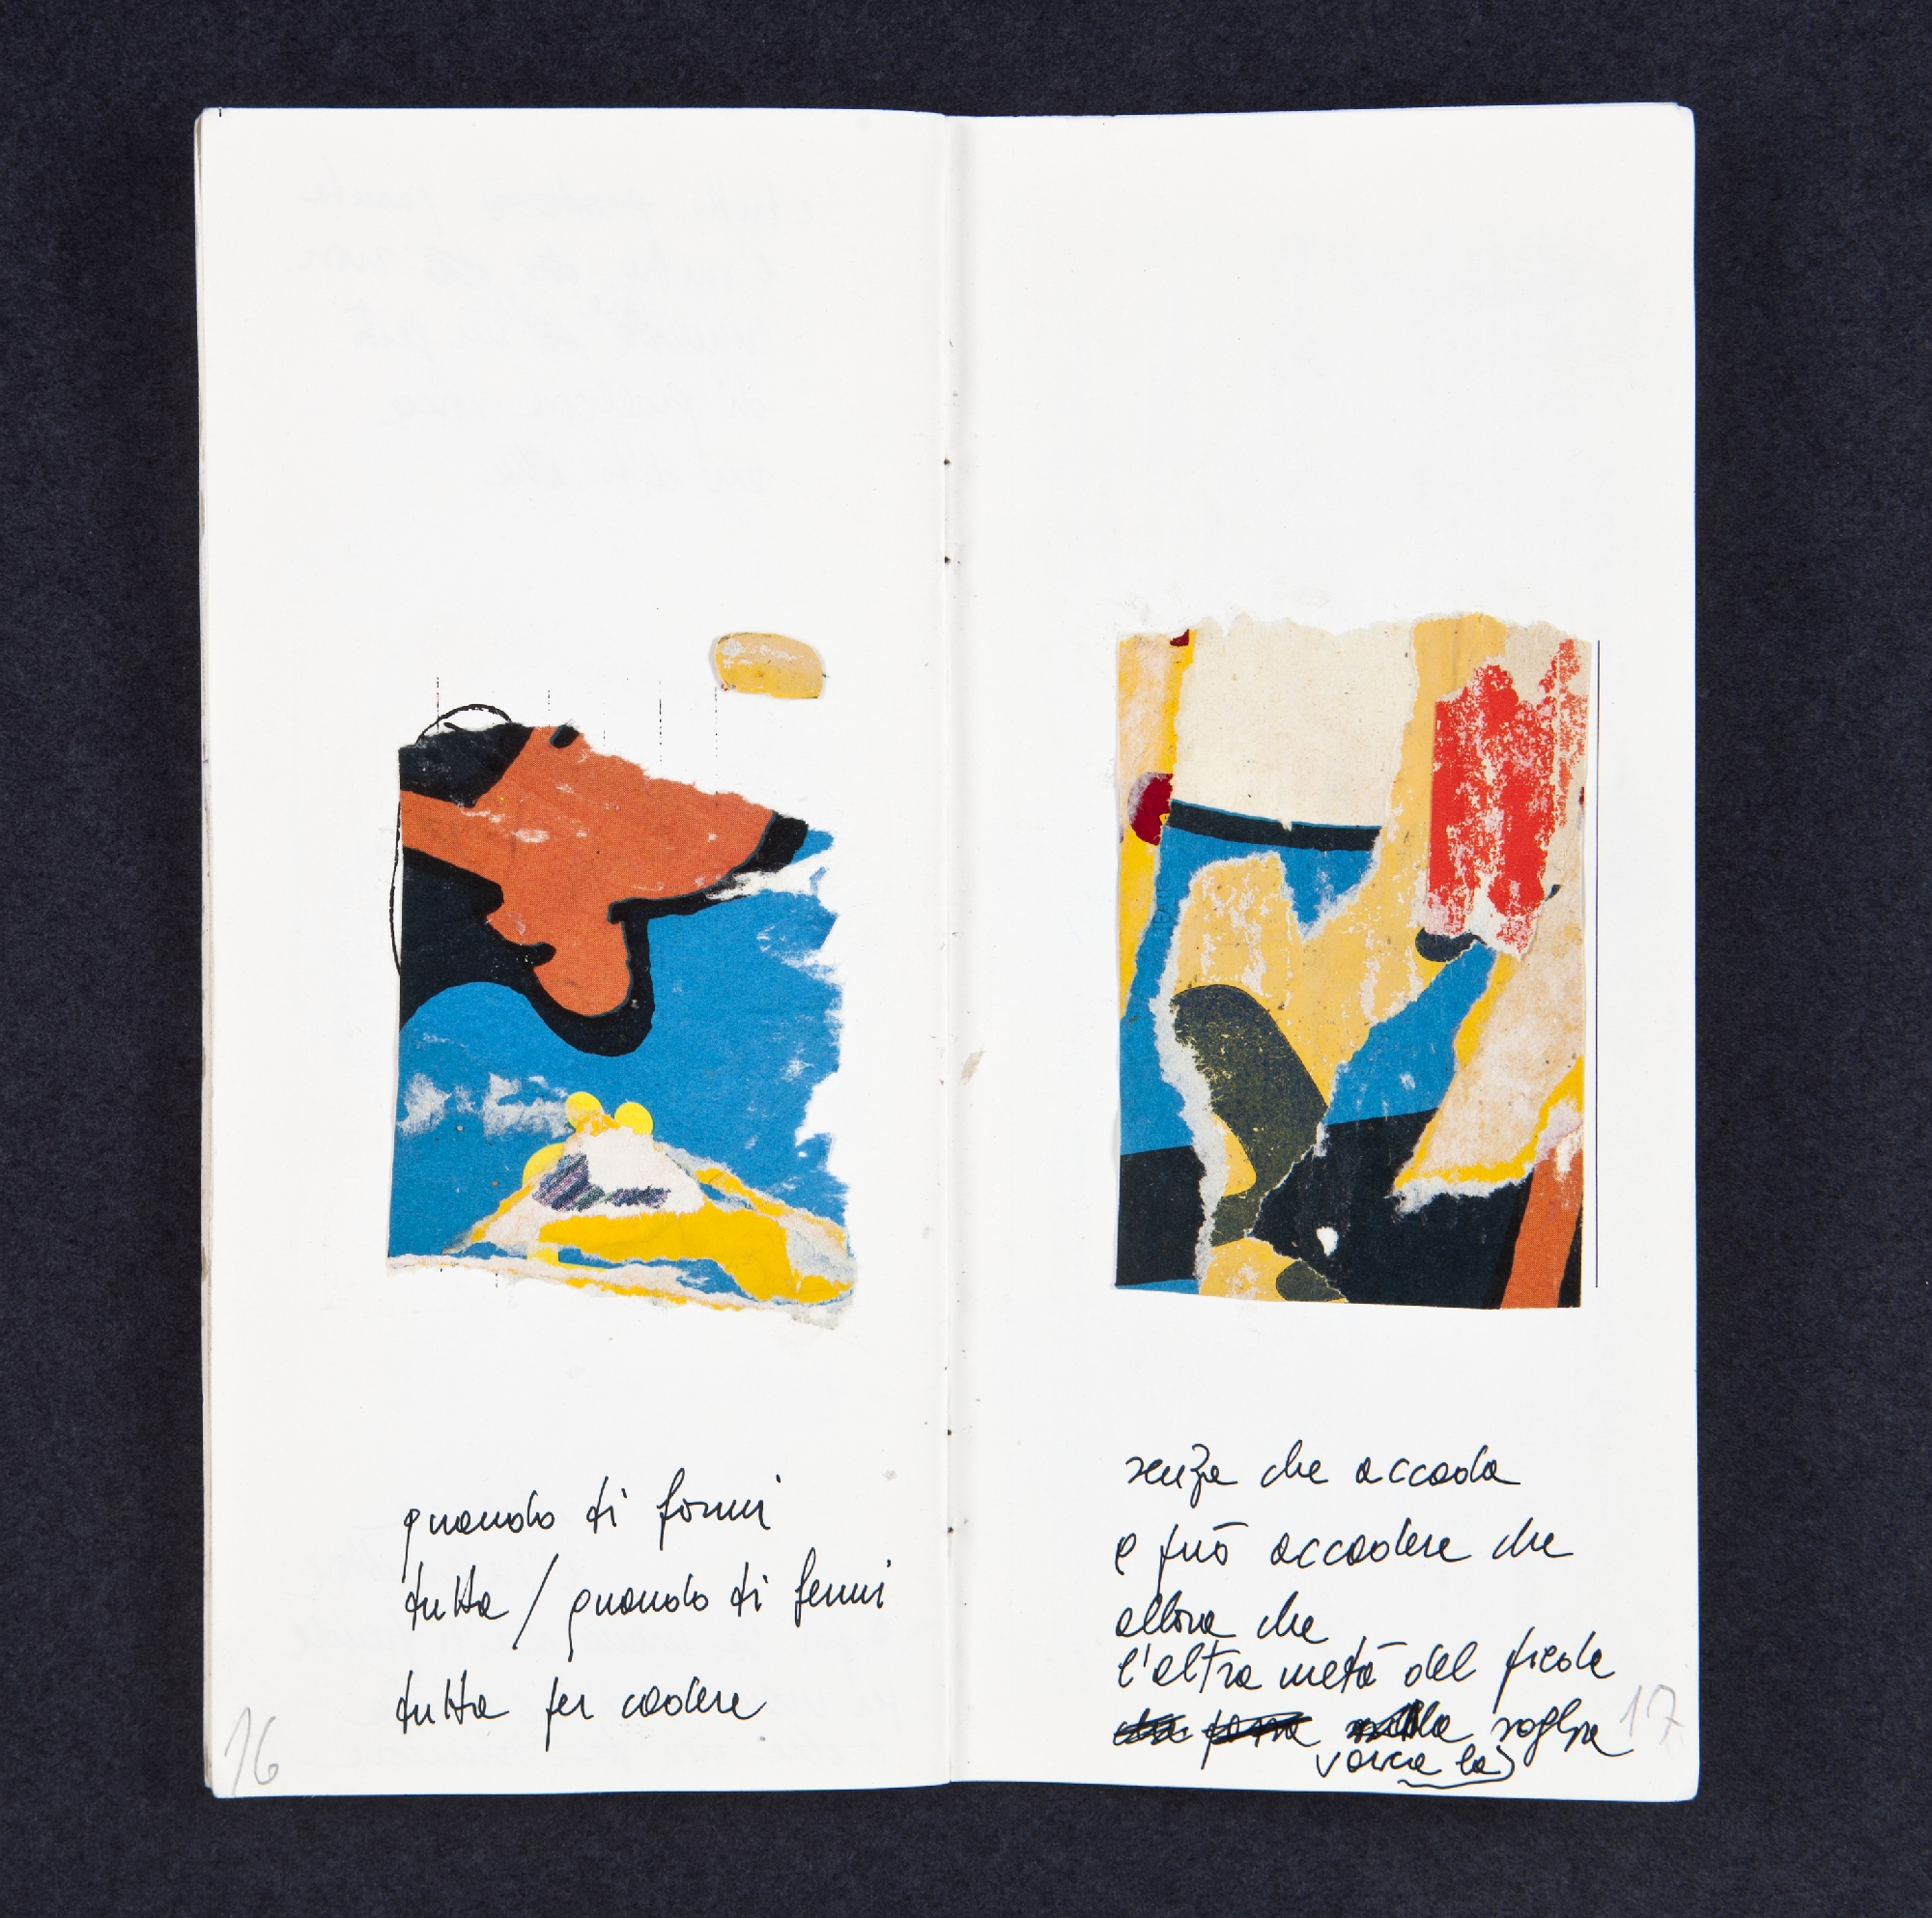 quando ti formi
tutta / quando ti fermi
tutta per cadere
16
senza che accada
e può accadere che
allora che
l'altra metà del piede
soglia
varca la
17